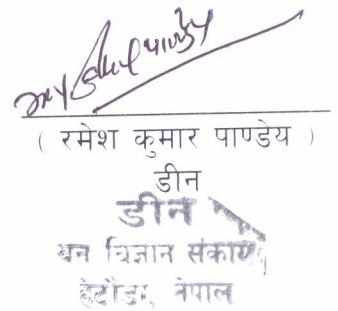 ( रमेश कुमार पाण्डेय )
डीन
डीन
वन विज्ञान संकाय
हेटौडा, नेपाल